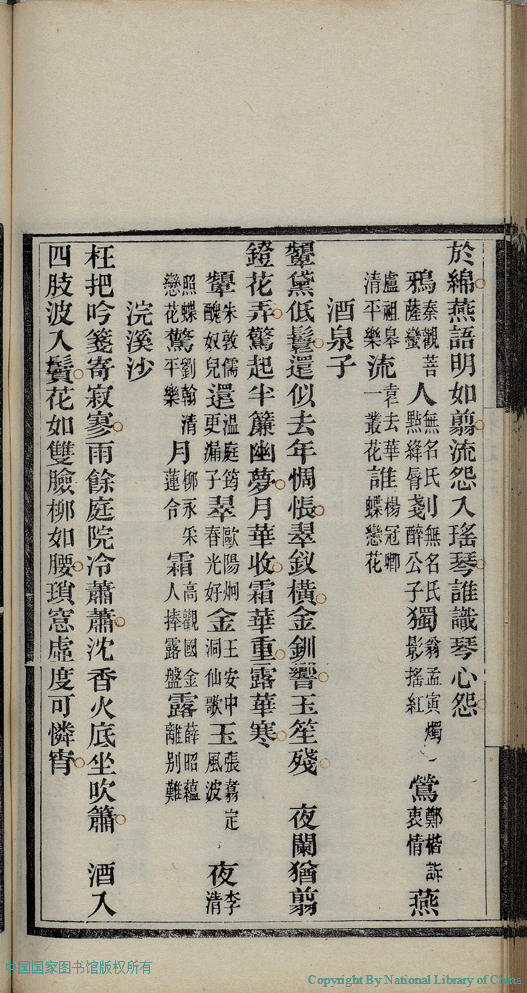 於綿燕語明如翦流怨入瑤琴誰識琴心怨
鴉秦觀菩薩蠻人無名氏點絳脣剗無名氏醉公子獨翁孟寅燭影搖紅鶯鄭楷訴衷情燕
盧祖皋清平樂流袁去華一叢花誰楊冠卿蝶戀花
酒泉子
顰黛低鬟還似去年惆悵翠釵橫金釧響玉笙殘 夜闌猶翦
鐙花弄驚起半簾幽夢月華收霜華重露華寒
顰朱敦儒醜奴兒還溫庭筠更漏子翠歐陽炯春光好金王安中洞仙歌玉張翥定風波夜李清
照蝶戀花驚劉翰清平樂月柳永采蓮令霜高觀國金人捧露盤露薛昭蘊離別難
浣溪沙
枉把吟箋寄寂寥雨餘庭院冷蕭蕭沈香火底坐吹簫 酒入
四肢波入鬢花如雙臉柳如腰瑣窻虛度可憐宵
中国国家图书馆版权所有
Copyright By National Library of China